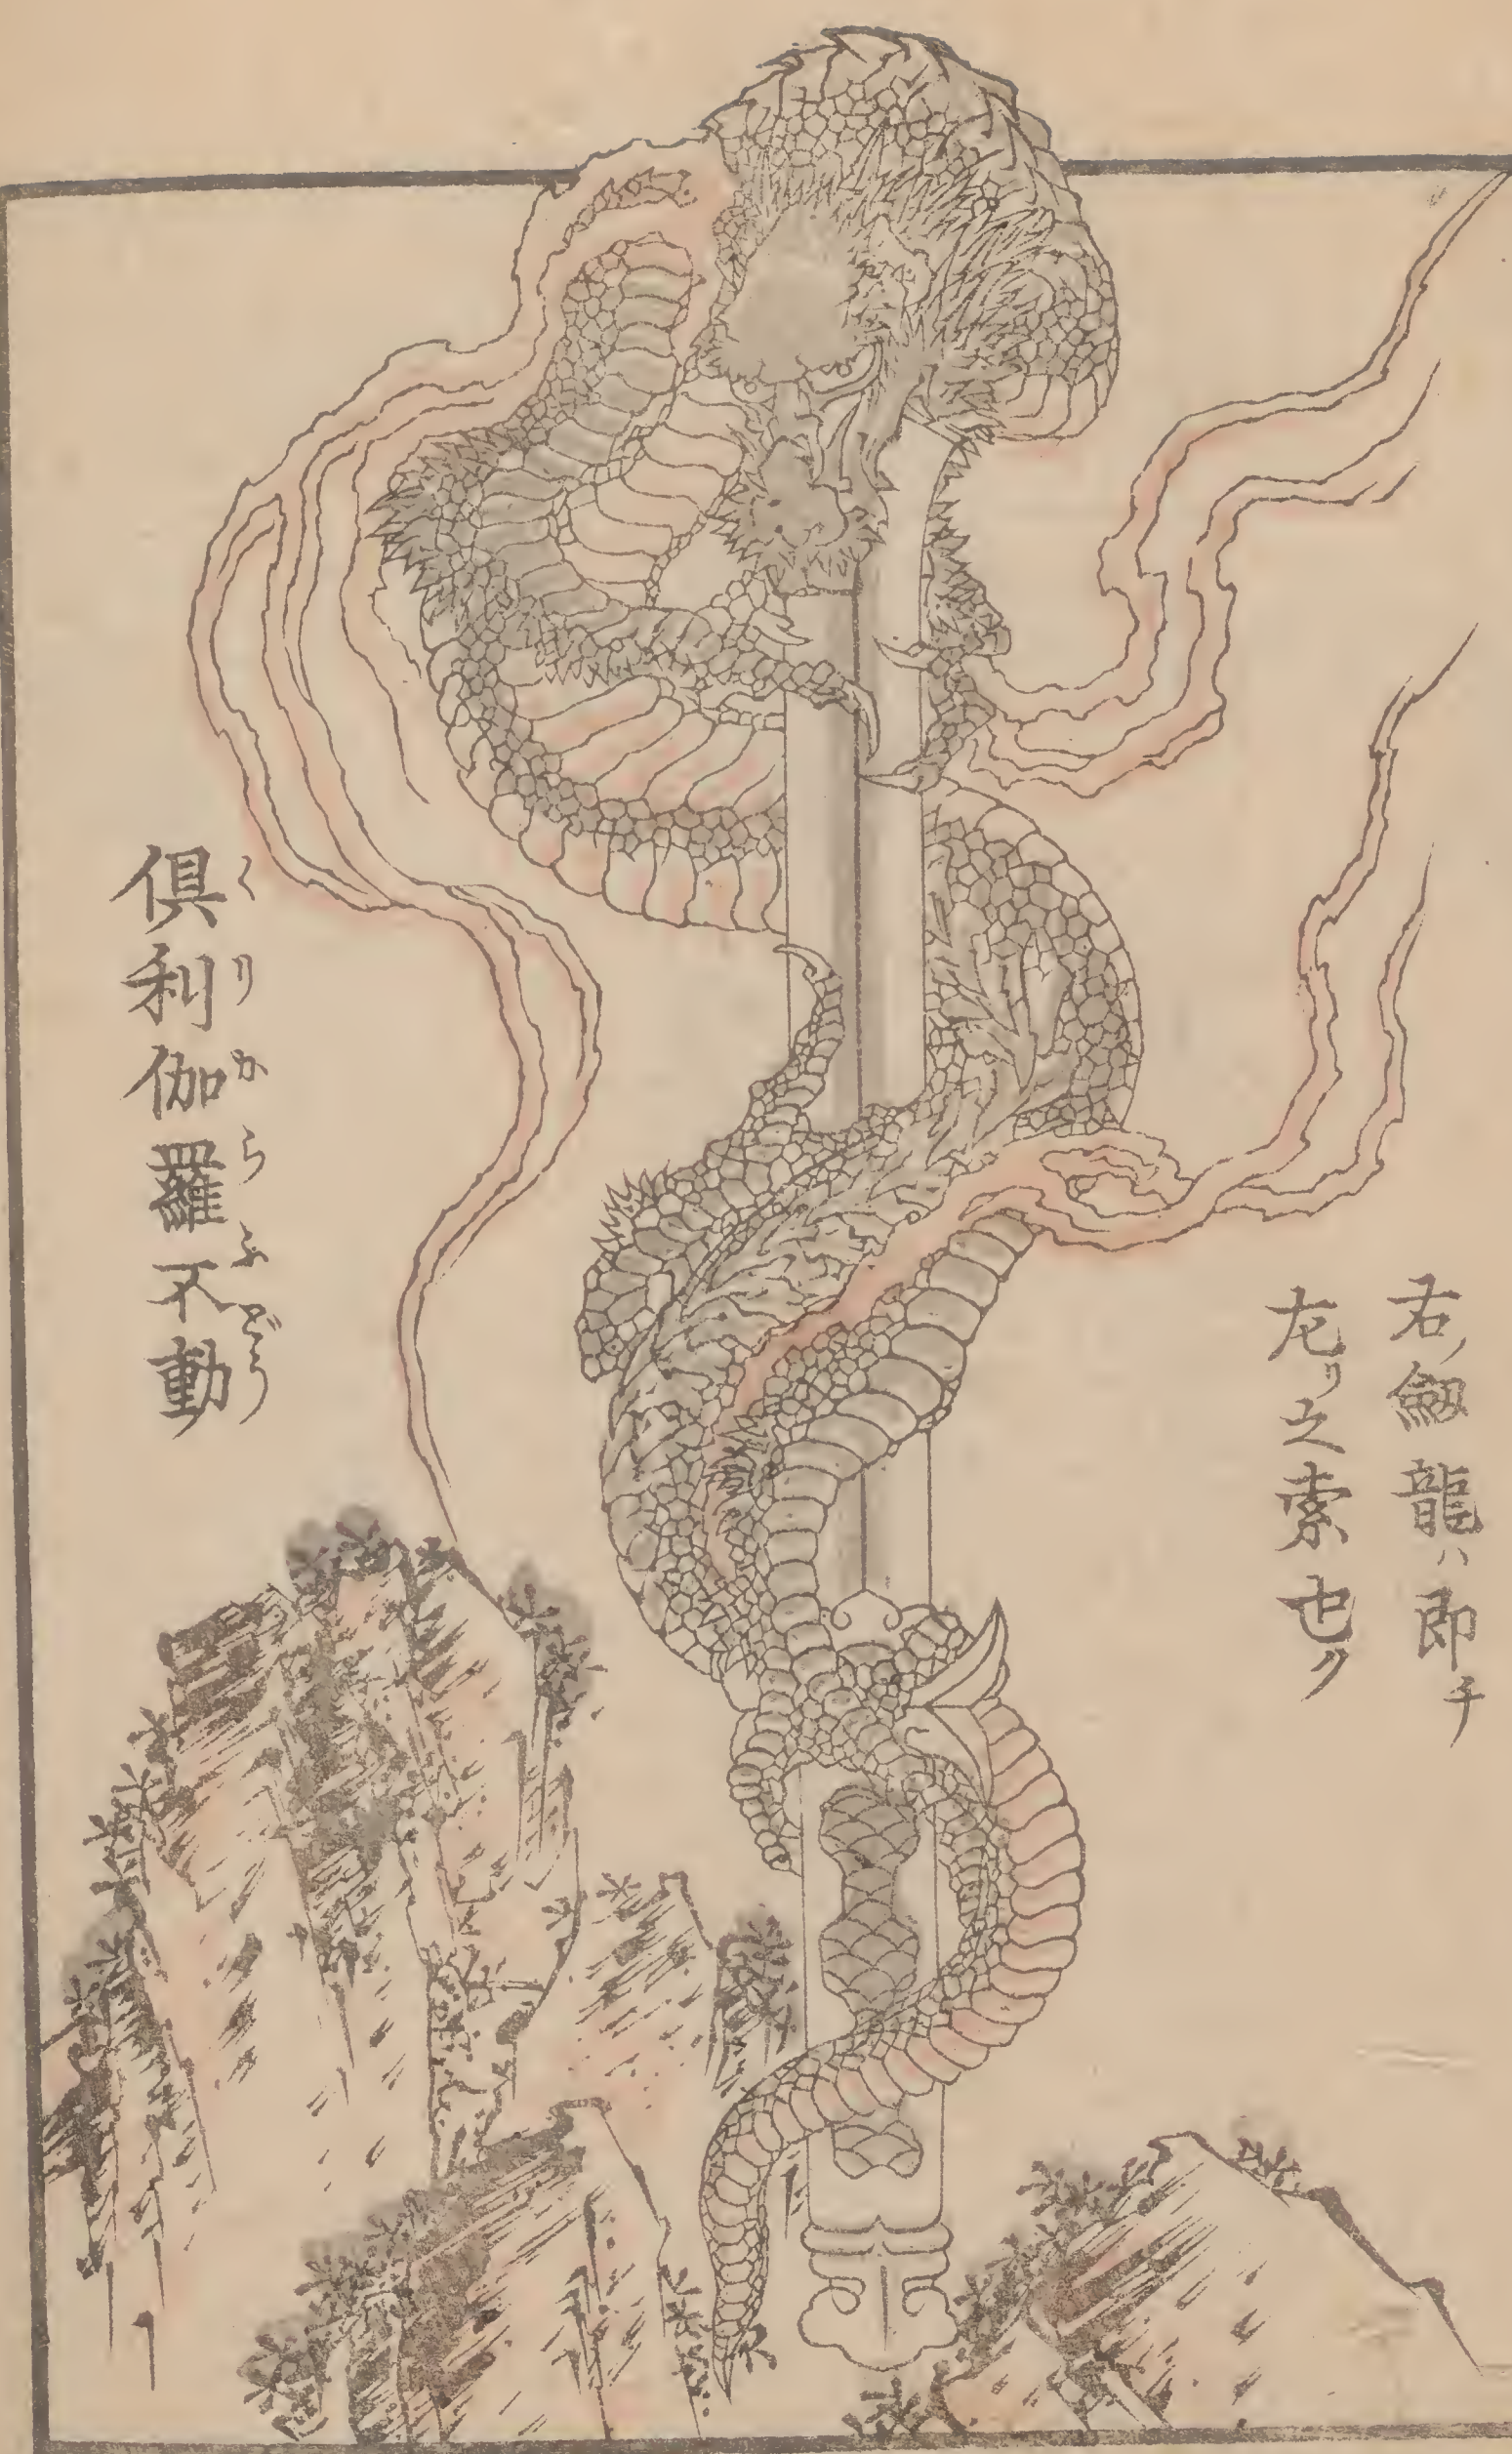 右ノ劔龍ハ即チ
左リ之索也ク
倶利伽羅不動
くりからふどう